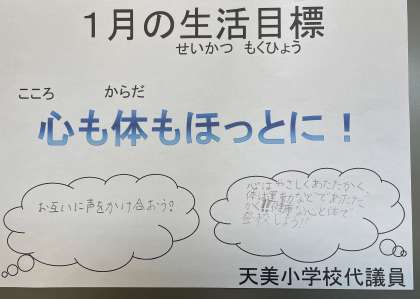 1月の生活目標
せいかつ もくひょう
こころ からだ
心も体もほっとに！
お互いに声をかけ合おう?
心はやさしくあたたかく、
体は運動などであたた
かく な心と体で
登校しよう!!
天美小学校代議員